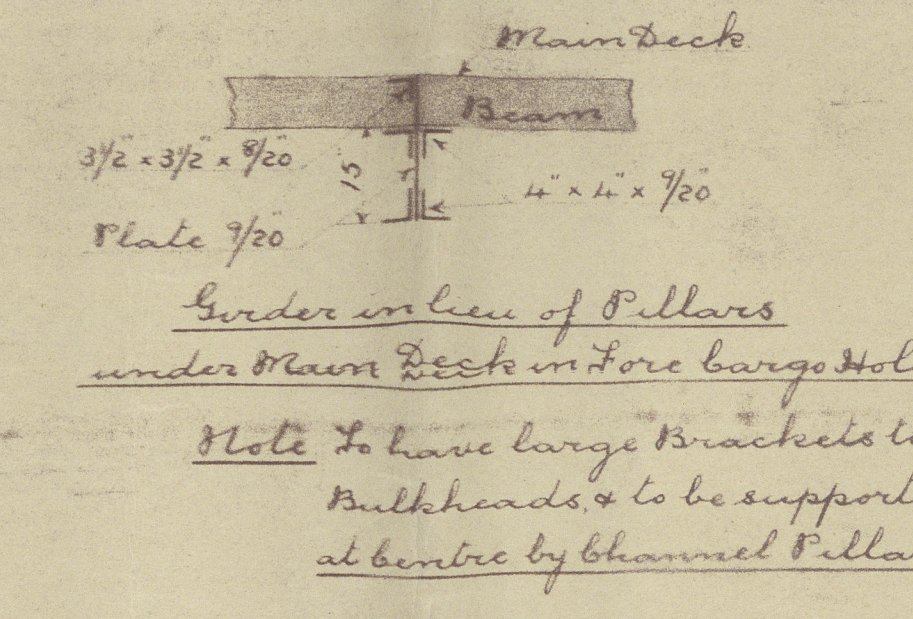 Main Deck
Beam
3 1/2" x 3 1/2" x 8/20"
15"
4" x 4" x 9/20"
Plate 9/20"
Girder in lieu of Pillars
under Main Deck in Fore Cargo Hol
Note To have large Brackets to
Bulkheads, & to be support
at Centre by Channel Pilla